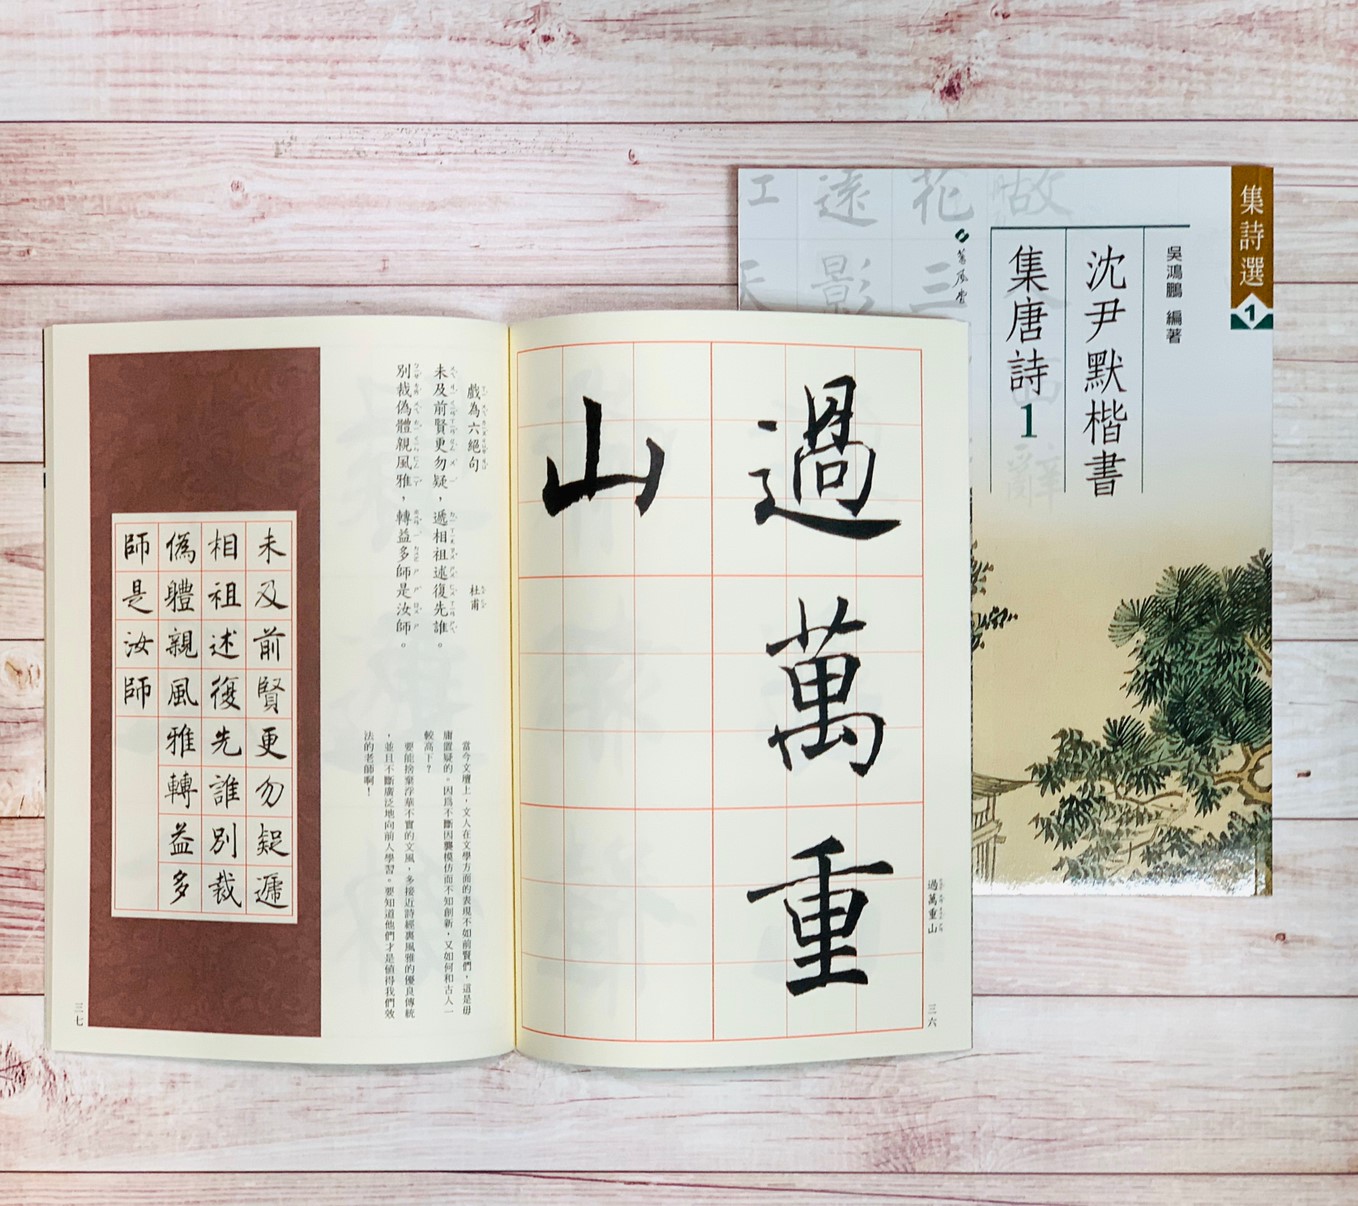 集詩選
1
吳鴻鵬 編著
沈尹默楷書
集唐詩1
蕙風堂
做
花三
遠影
工天
辭
過萬重
山
過萬重山
三六
戲為六絕句
杜甫
未及前賢更勿疑，遞相祖述復先誰。
別裁偽體親風雅，轉益多師是汝師。
當今文壇上，文人在文學方面的表現不如前賢們，這是毋
庸置疑的。因爲不斷因襲模仿而不知創新，又如何和古人一
較高下？
要能捨棄浮華不實的文風，多接近詩經裏風雅的優良傳統
，並且不斷廣泛地向前人學習。要知道他們才是值得我們效
法的老師啊！
未及前賢更勿疑遞
相祖述復先誰別裁
偽體親風雅轉益多
師是汝師
三七